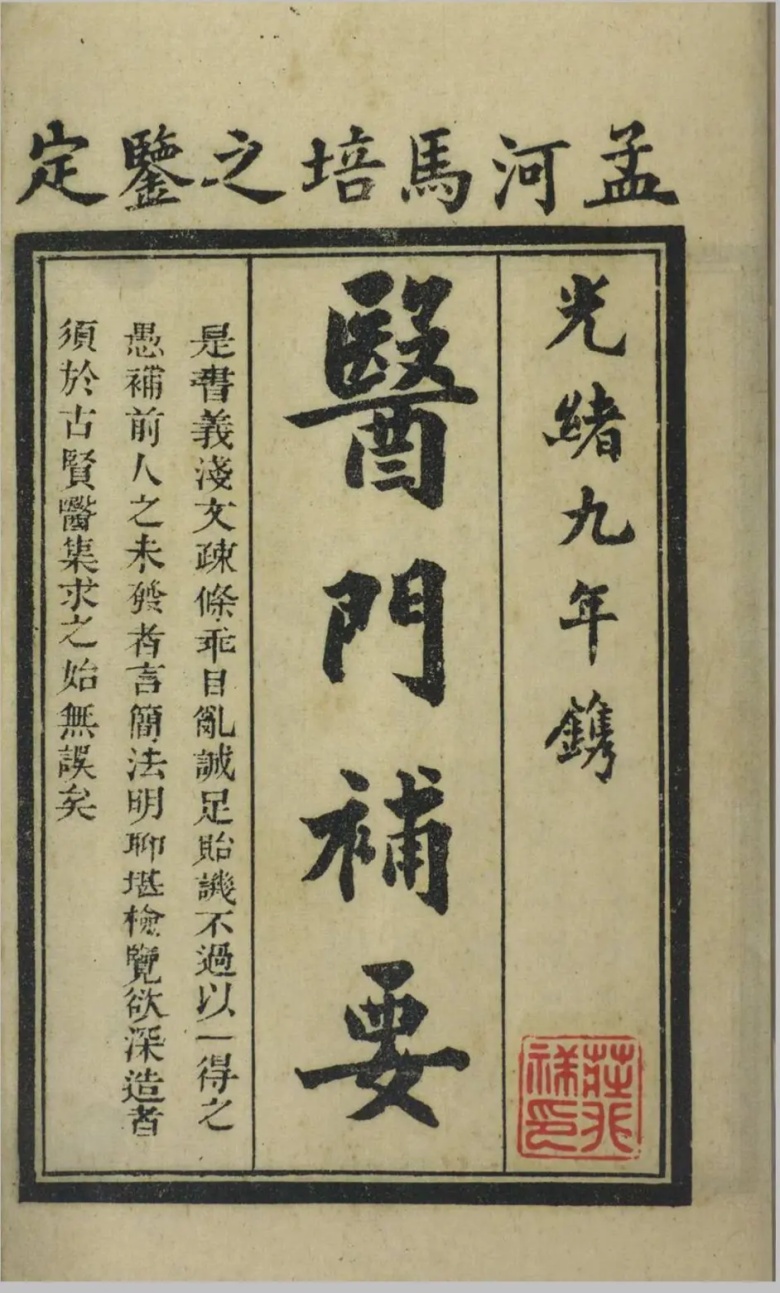 孟河馬培之鑒定
光緒九年鐫
醫門補要
是書義淺文疎條乖目亂誠足貽譏不過以一得之
愚補前人之未發者言簡法明聊堪檢覽欲深造者
須於古賢醫集求之始無誤矣